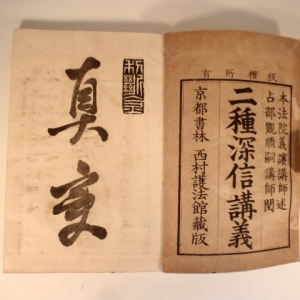 板權所有
本法院義讓講師述
占部觀順嗣講師閲
二種深信講義
京都書林 西村護法館藏版
真